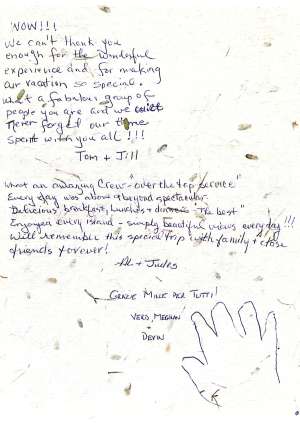 WOW!!!
We can't thank you
enough for the wonderful
experience and for making
our vacation so special.
What a fabulous group of
people you are and we
never forget our time
spent with you all!!!
Tom + Jill
What an amazing Crew - "over the top service"
Every day was above + beyond spectacular.
Delicious breakfast, lunches + dinners "the best"
Enjoyed every island - simply beautiful views everyday!!!
Will remember this special trip with family + close
friends forever!
+ Judy
GRAZIE MILLE PER TUTTI!
MEGHAN
DEVIN